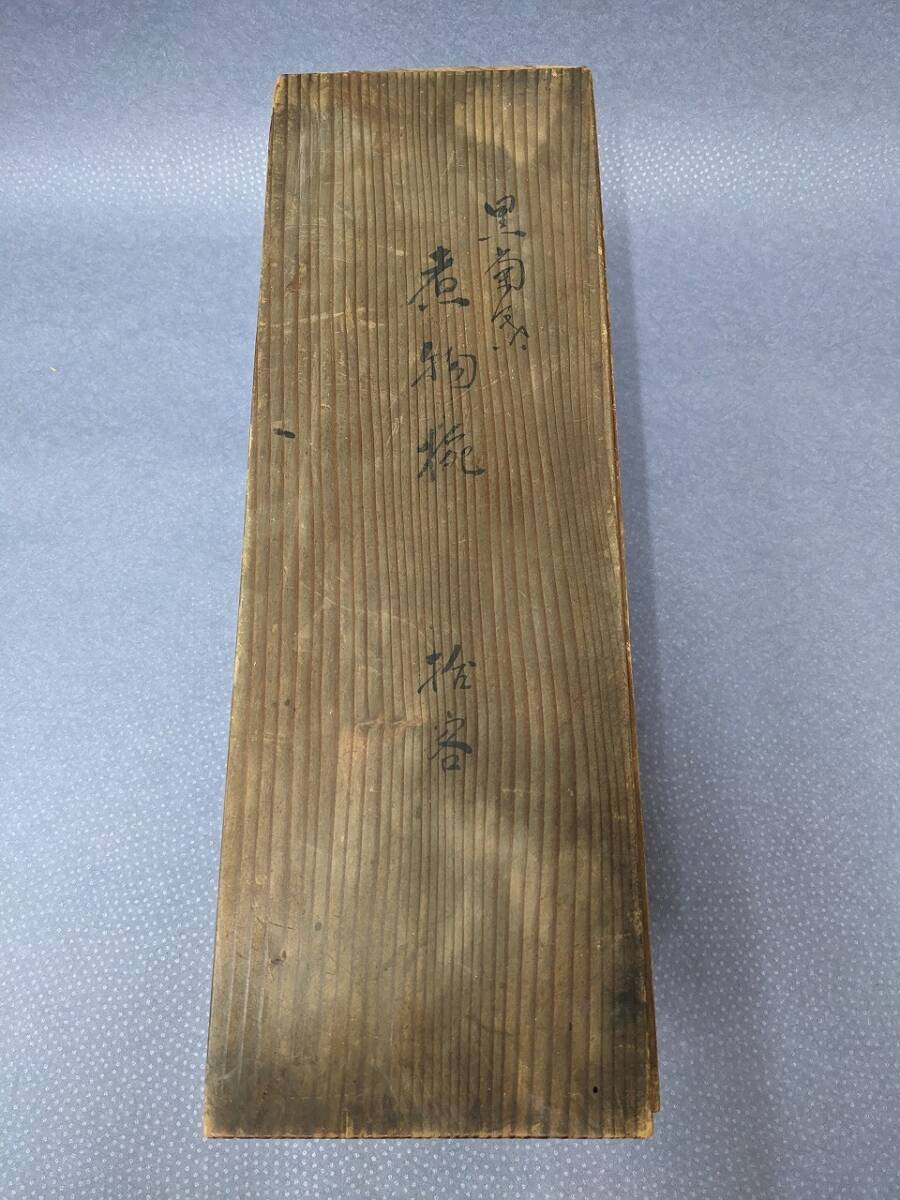 黒菊
煮物椀 拾客